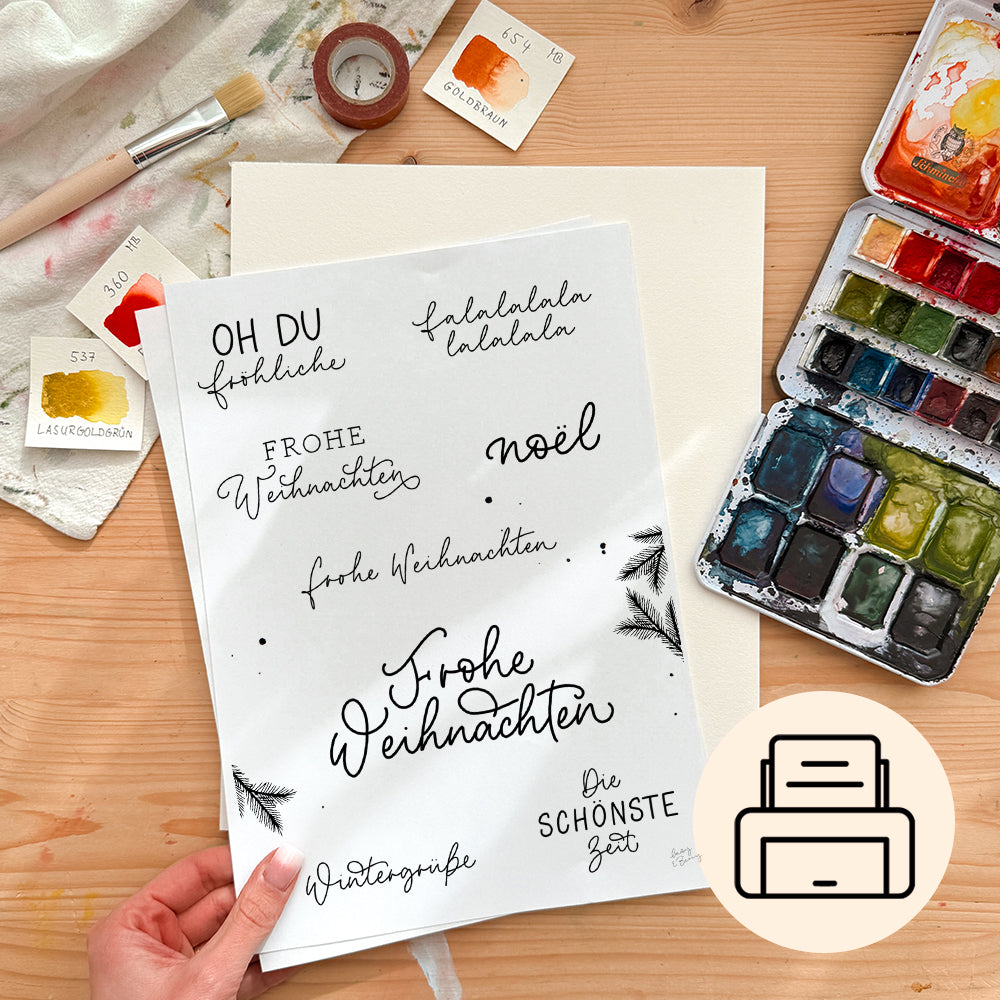 654 MB
GOLDBRAUN
Schmincke
360 MB
537
LASURGOLDGRÜN
OH DU
fröhliche
falalalalala
lalalala
FROHE
Weihnachten
noël
frohe Weihnachten
Frohe
Weihnachten
Die
SCHÖNSTE
Zeit
Wintergrüße